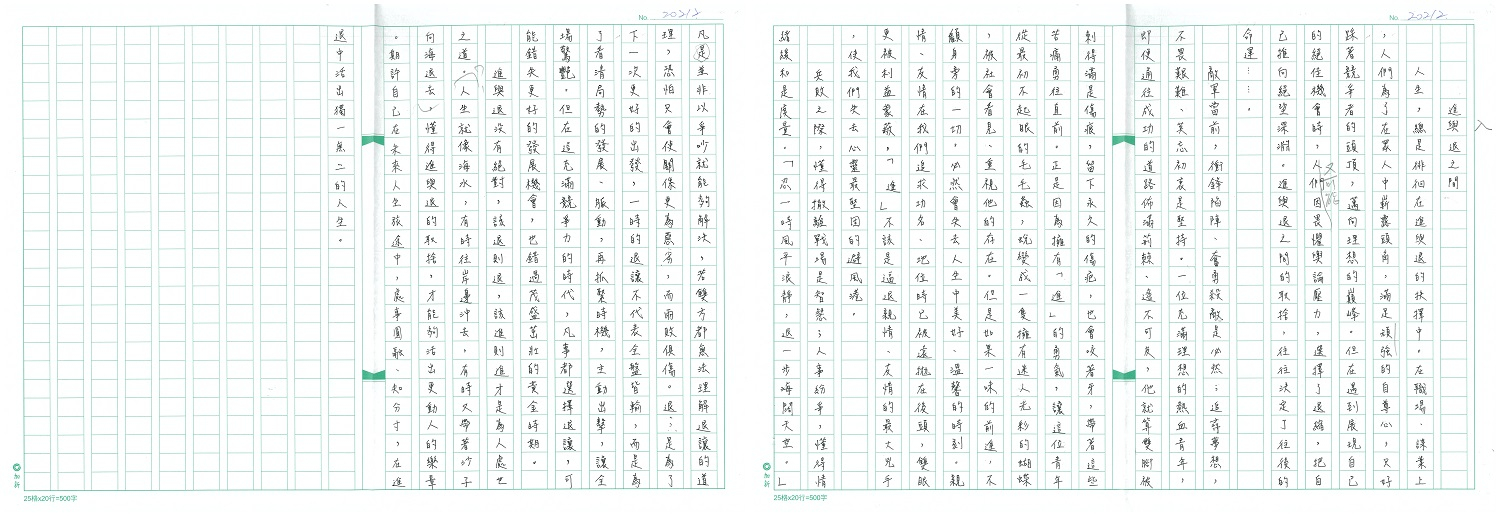 No. 20212
進與退之間
人生，總是徘徊在進與退的抉擇中。在職場、課業上
，人們為了在眾人中嶄露頭角，滿足頑強的自尊心，只好
踩著競爭者的頭頂，邁向理想的巔峰。但在遇到展現自己
的絕佳機會時，人們因畏懼輿論壓力，選擇了退縮，把自
又可能
己推向絕望深淵。進與退之間的取捨，往往決定了往後的
命運……。
敵軍當前，衝鋒陷陣、奮勇殺敵是必然；追尋夢想，
不畏艱難、莫忘初衷是堅持。一位充滿理想的熱血青年，
即使通往成功的道路佈滿荊棘、遙不可及，他就算雙腳被
刺得滿是傷痕，留下永久的傷疤，也會咬著牙，帶著這些
苦痛勇往直前。正是因為擁有「進」的勇氣，讓這位青年
從最初不起眼的毛毛蟲，蛻變成一隻擁有迷人光彩的蝴蝶
，被社會看見、重視他的存在。但是如果一味的前進，不
顧身旁的一切，必然會失去人生中美好、溫馨的時刻。親
情、友情在我們追求功名、地位時已被遠推在後頭，雙眼
更被利益蒙蔽，「進」不該是逼退親情、友情的最大兇手
，使我們失去心靈最堅固的避風港。
兵敗之際，懂得撤離戰場是智慧；人事紛爭，懂得情
緒緩和是度量。「忍一時風平浪靜，退一步海闊天空。」
25格x20行=500字
No. 20212
凡是並非以爭吵就能夠解決，若雙方都無法理解退讓的道
理，恐怕又會使關係更為惡劣，而兩敗俱傷。退，是為了
下一次更好的出發，一時的退讓不代表全盤皆輸，而是為
了看清局勢的發展、脈動，再抓緊時機，主動出擊，讓全
場驚艷。但在這充滿競爭力的時代，凡事都選擇退讓，可
能錯失更好的發展機會，也錯過茂盛萬紅的黃金時期。
進與退沒有絕對，該退則退，該進則進才是為人處世
之道。人生就像海水，有時往岸邊沖去，有時又帶著沙子
向海退去，懂得進與退的取捨，才能夠活出更動人的樂章
。期許自己在未來人生旅途中，處事圓融、知分寸，在進
退中活出獨一無二的人生。
25格x20行=500字